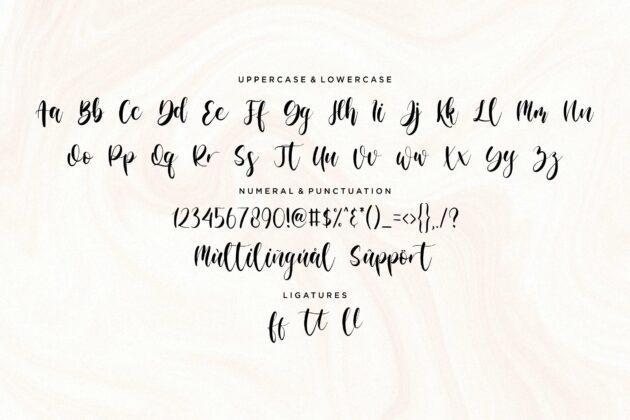 UPPERCASE & LOWERCASE
Aa Bb Cc Dd Ee Ff Gg Hh Ii Jj Kk Ll Mm Nn
Oo Pp Qq Rr Ss Tt Uu Vv Ww Xx Yy Zz
NUMERAL & PUNCTUATION
1234567890!@#$%^&*()_=<>{},./?
Múltilíngúál Súppórt
LIGATURES
ff tt ll